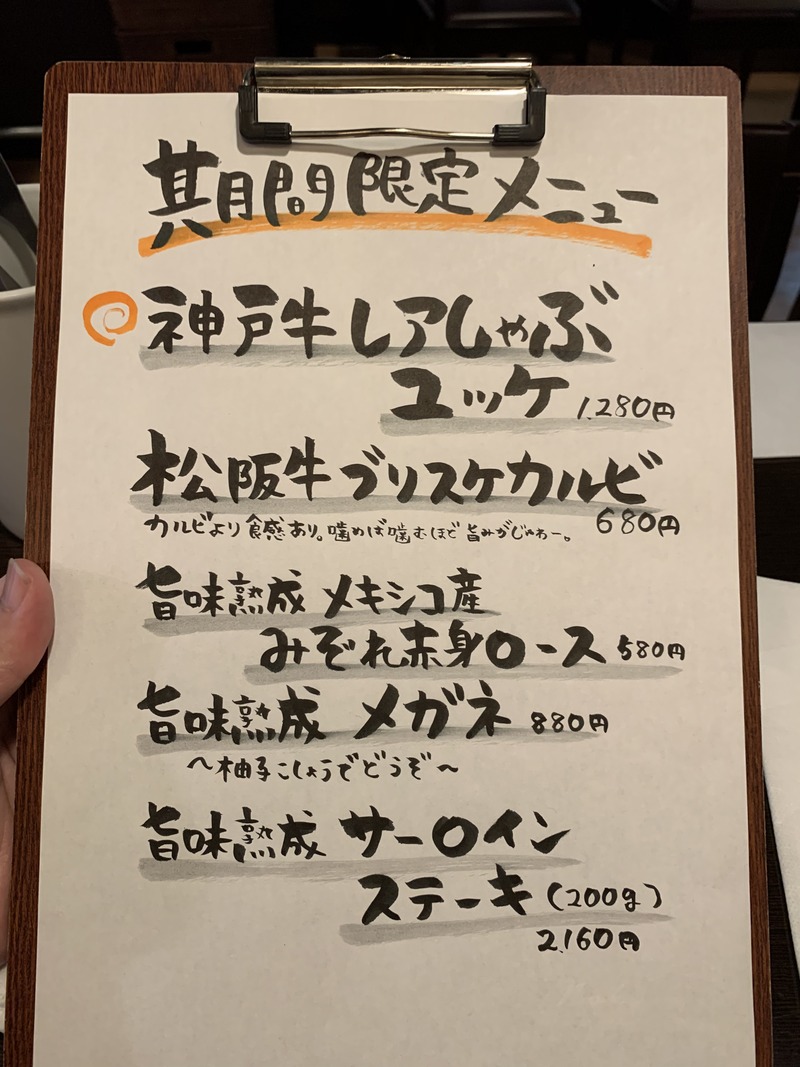 期間限定メニュー
神戸牛レアしゃぶ
ユッケ 1,280円
松阪牛ブリスケカルビ
カルビより食感あり。噛めば噛むほど旨みがじゅわー。 680円
旨味熟成 メキシコ産
みぞれ赤身ロース 580円
旨味熟成 メガネ 880円
〜柚子こしょうでどうぞ〜
旨味熟成 サーロイン
ステーキ (200g)
2,160円